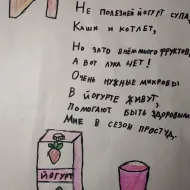 Не полезней йогурт супа,
Каши и котлет,
Но зато в нём много фруктов,
А вот лука нет!
Очень нужные микробы
В йогурте живут,
Помогают быть здоровыми
Мне в сезон простуд.
ЙОГУРТ